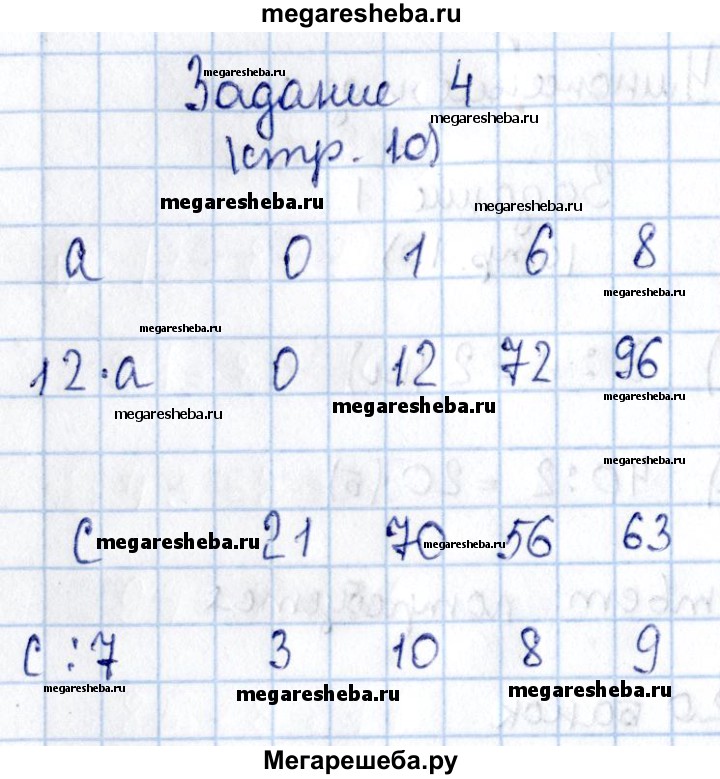 megaresheba.ru
megaresheba.ru
Задание 4
megaresheba.ru
(стр. 10)
megaresheba.ru megaresheba.ru
a 0 1 6 8
megaresheba.ru
megaresheba.ru
12·a 0 12 72 96
megaresheba.ru megaresheba.ru megaresheba.ru
megaresheba.ru
c megaresheba.ru 21 70 megaresheba.ru 56 63
c:7 3 10 8 9
megaresheba.ru megaresheba.ru megaresheba.ru
Мегарешеба.ру